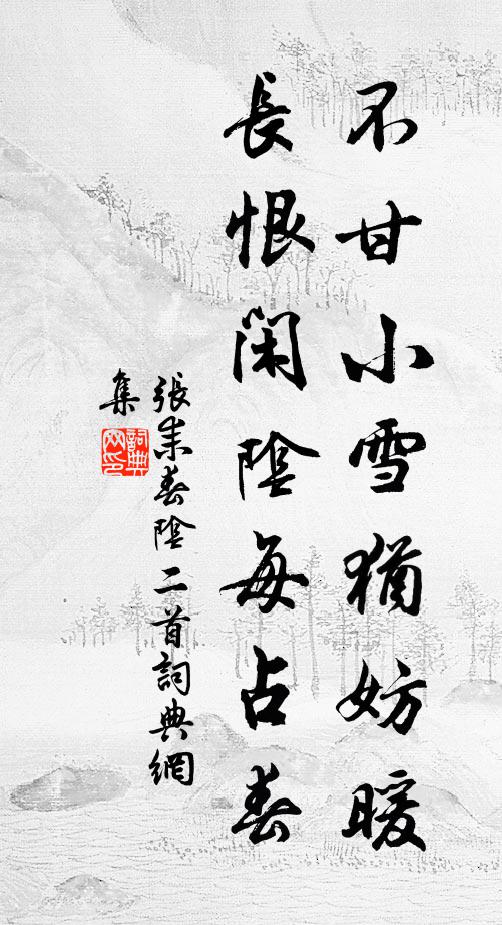 不甘小雪猶妨暖
長恨閑陰每占春
張耒春陰二首詞典網
集
詞典
網印